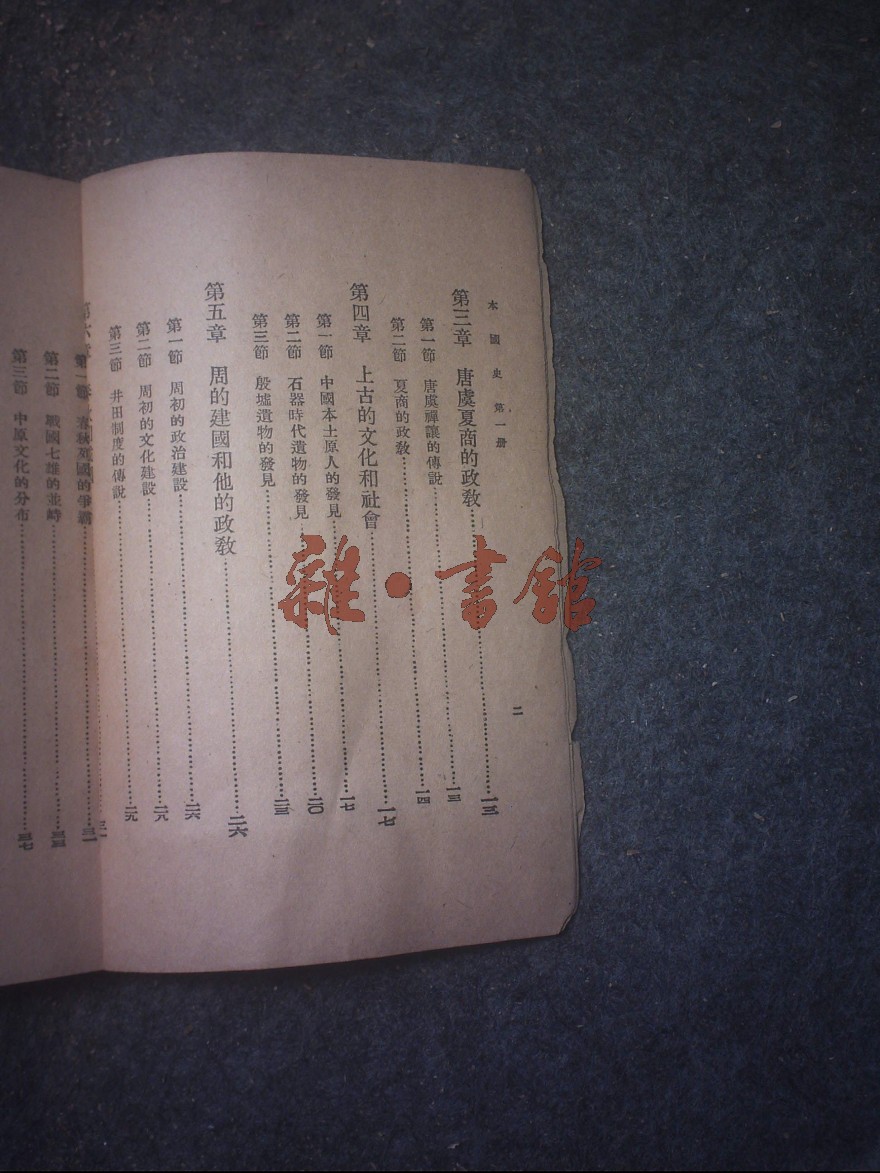 本國史 第一册
二
第三章 唐虞夏商的政教……一三
第一節 唐虞禪讓的傳說……一三
第二節 夏商的政教……一四
第四章 上古的文化和社會……一七
第一節 中國本土原人的發見……一七
第二節 石器時代遺物的發見……二〇
第三節 殷墟遺物的發見……二三
第五章 周的建國和他的政教……二六
第一節 周初的政治建設……二六
第二節 周初的文化建設……二八
第三節 井田制度的傳說……二九
第六章
第一節 春秋列國的爭霸……三一
第二節 戰國七雄的並峙……三三
第三節 中原文化的分布……三七
雜·書館